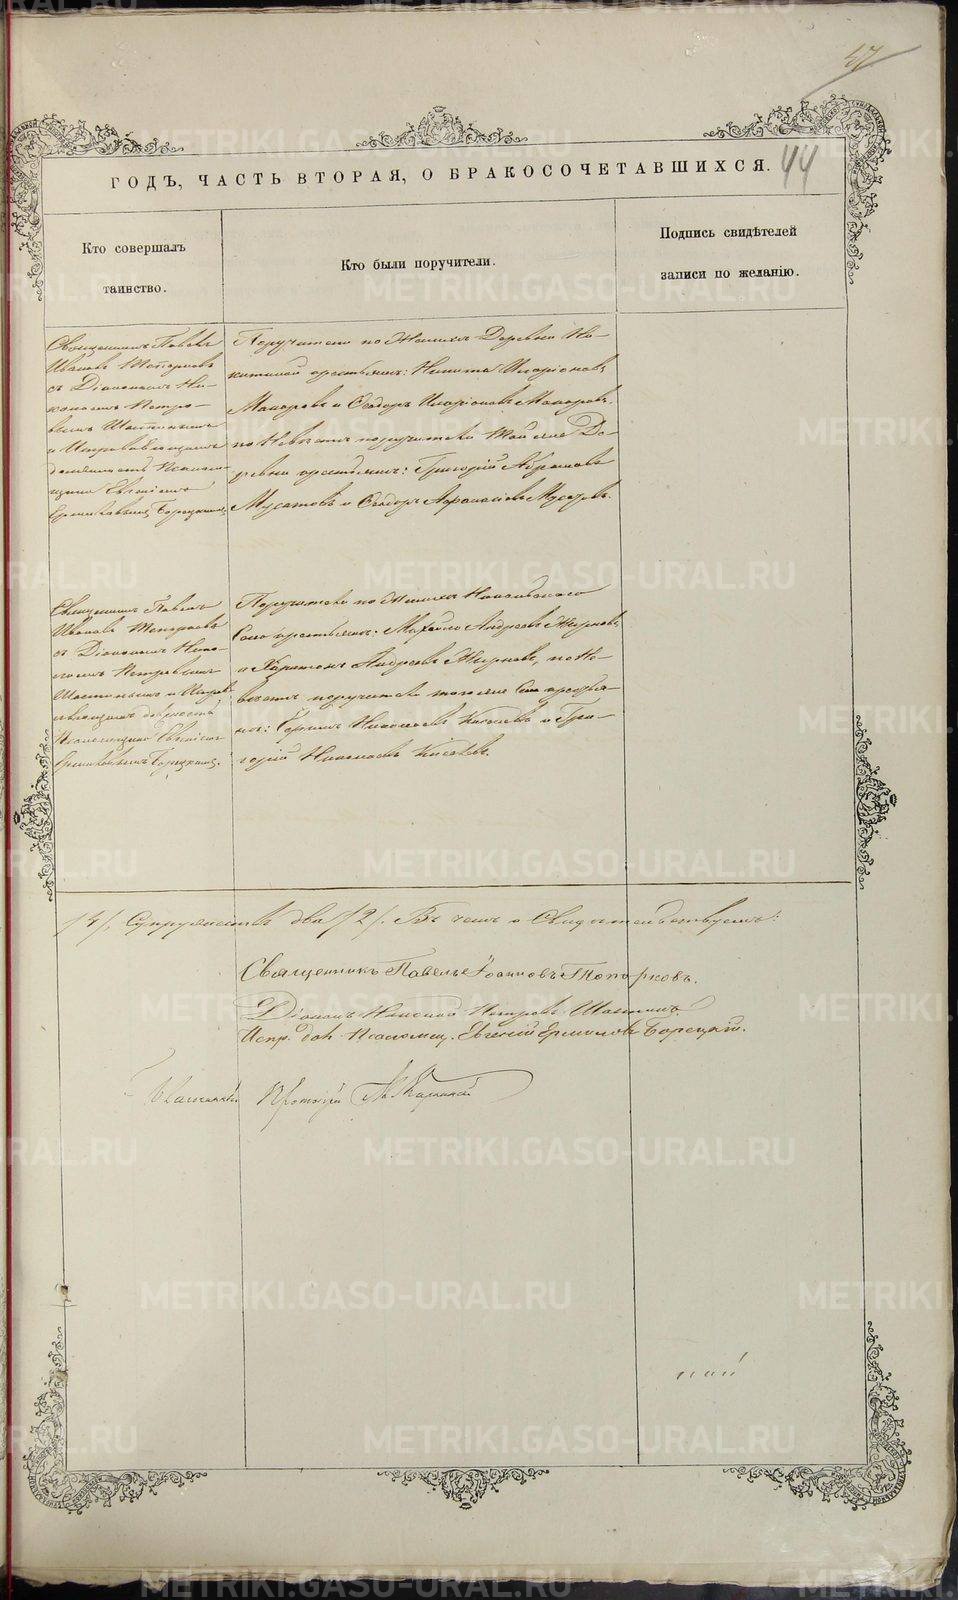 47
ГОДЪ, ЧАСТЬ ВТОРАЯ, О БРАКОСОЧЕТАВШИХСЯ. 44
Кто совершалъ
таинство.
Кто были поручители.
Подпись свидѣтелей
записи по желанію.
Священникъ Павелъ
Ивановъ Топорковъ
съ Діакономъ Ни-
колаемъ Петро-
вымъ
и Исправляющимъ
должность Псалом-
щика Евгеніемъ
Ермиловымъ Борецкимъ.
Поручители по Женихѣ Деревни Ни-
китиной крестьяне: Никита Иларіоновъ
Макаровъ и Ѳеодоръ Иларіоновъ Макаровъ.
по Невѣстѣ поручители той же Де-
ревни крестьяне: Григорій Абрамовъ
Мусатовъ и Ѳеодоръ Аѳанасіевъ Мусатовъ.
Священникъ Павелъ
Ивановъ Топорковъ
съ Діакономъ Нико-
лаемъ Петровымъ
и Исправ-
ляющимъ должность
Псаломщика Евгеніемъ
Ермиловымъ Борецкимъ.
Поручители по Женихѣ
Села крестьяне: Михайло Андреевъ Жирновъ
и Харитонъ Андреевъ Жирновъ, по Не-
вѣстѣ поручители того же Села крестья-
не: Сергій Николаевъ и Гри-
горій Николаевъ
Супружествъ два /2/. Въ чемъ и Свидѣтельствуемъ:
Священникъ Павелъ Іоанновъ Топорковъ.
Діаконъ Николай Петровъ
Испр. дол. Псаломщ. Евгеній Ермиловъ Борецкій.
Благочинный Протоіерей
METRIKI.GASO-URAL.RU